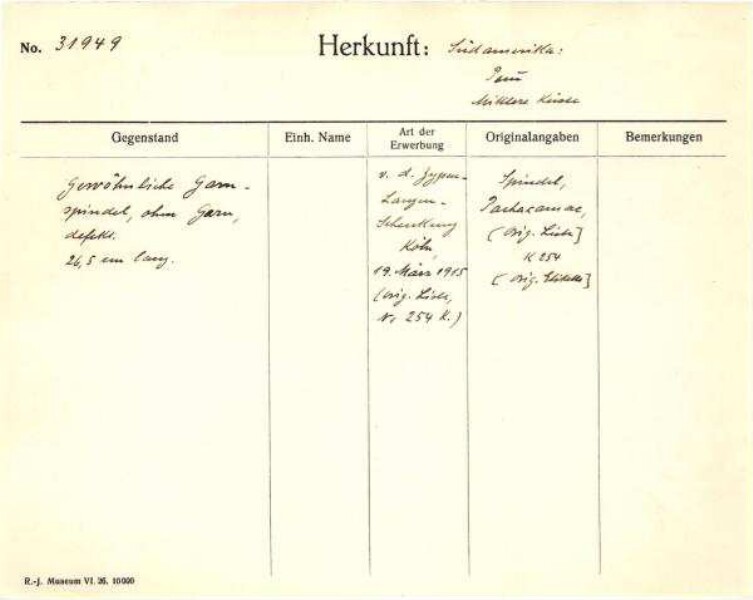 No. 31949
Herkunft: Südamerika:
Perú
Mittlere Küste
Gegenstand
Einh. Name
Art der Erwerbung
Originalangaben
Bemerkungen
Gewöhnliche Garn-
spindel, ohne Garn,
defekt.
26,5 cm lang.
v. d. Zypen-
Langen-
Schenkung
Köln,
19. März 1915
(Orig. Liste,
Nr 254 K.)
Spindel,
Pachacamac,
(Orig. Liste]
K 254
(Orig. Etikette]
R.-J. Museum VI. 26. 10000